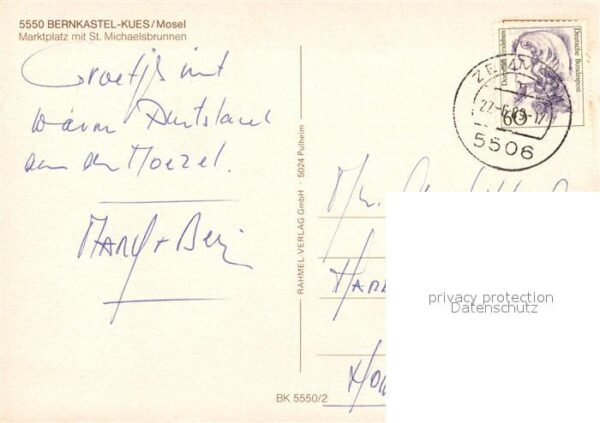 5550 BERNKASTEL-KUES/Mosel
Marktplatz mit St. Michaelsbrunnen
Groetjes uit
warm Duitsland
aan de Moezel.
MARY + Ben
RAHMEL-VERLAG GmbH · 5024 Pulheim
BK 5550/2
Deutsche Bundespost
60
ZEMMER
27.-6.89-17
5506
privacy protection
Datenschutz